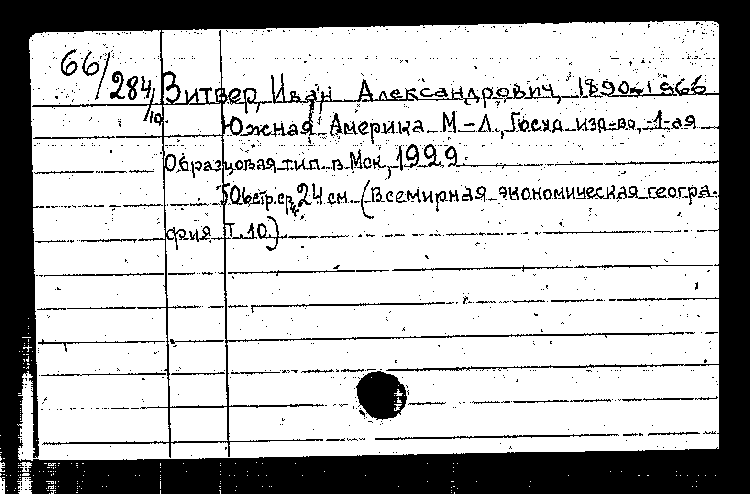 66/284/10 Зитвер, Иван Александрович, 1890-1966
Южная Америка М-Л., Госуд изд-во, 1-ая
Образцовая тип. в Мск, 1929.
24 см. (Всемирная экономическая геогра-
фия Т. 10.)